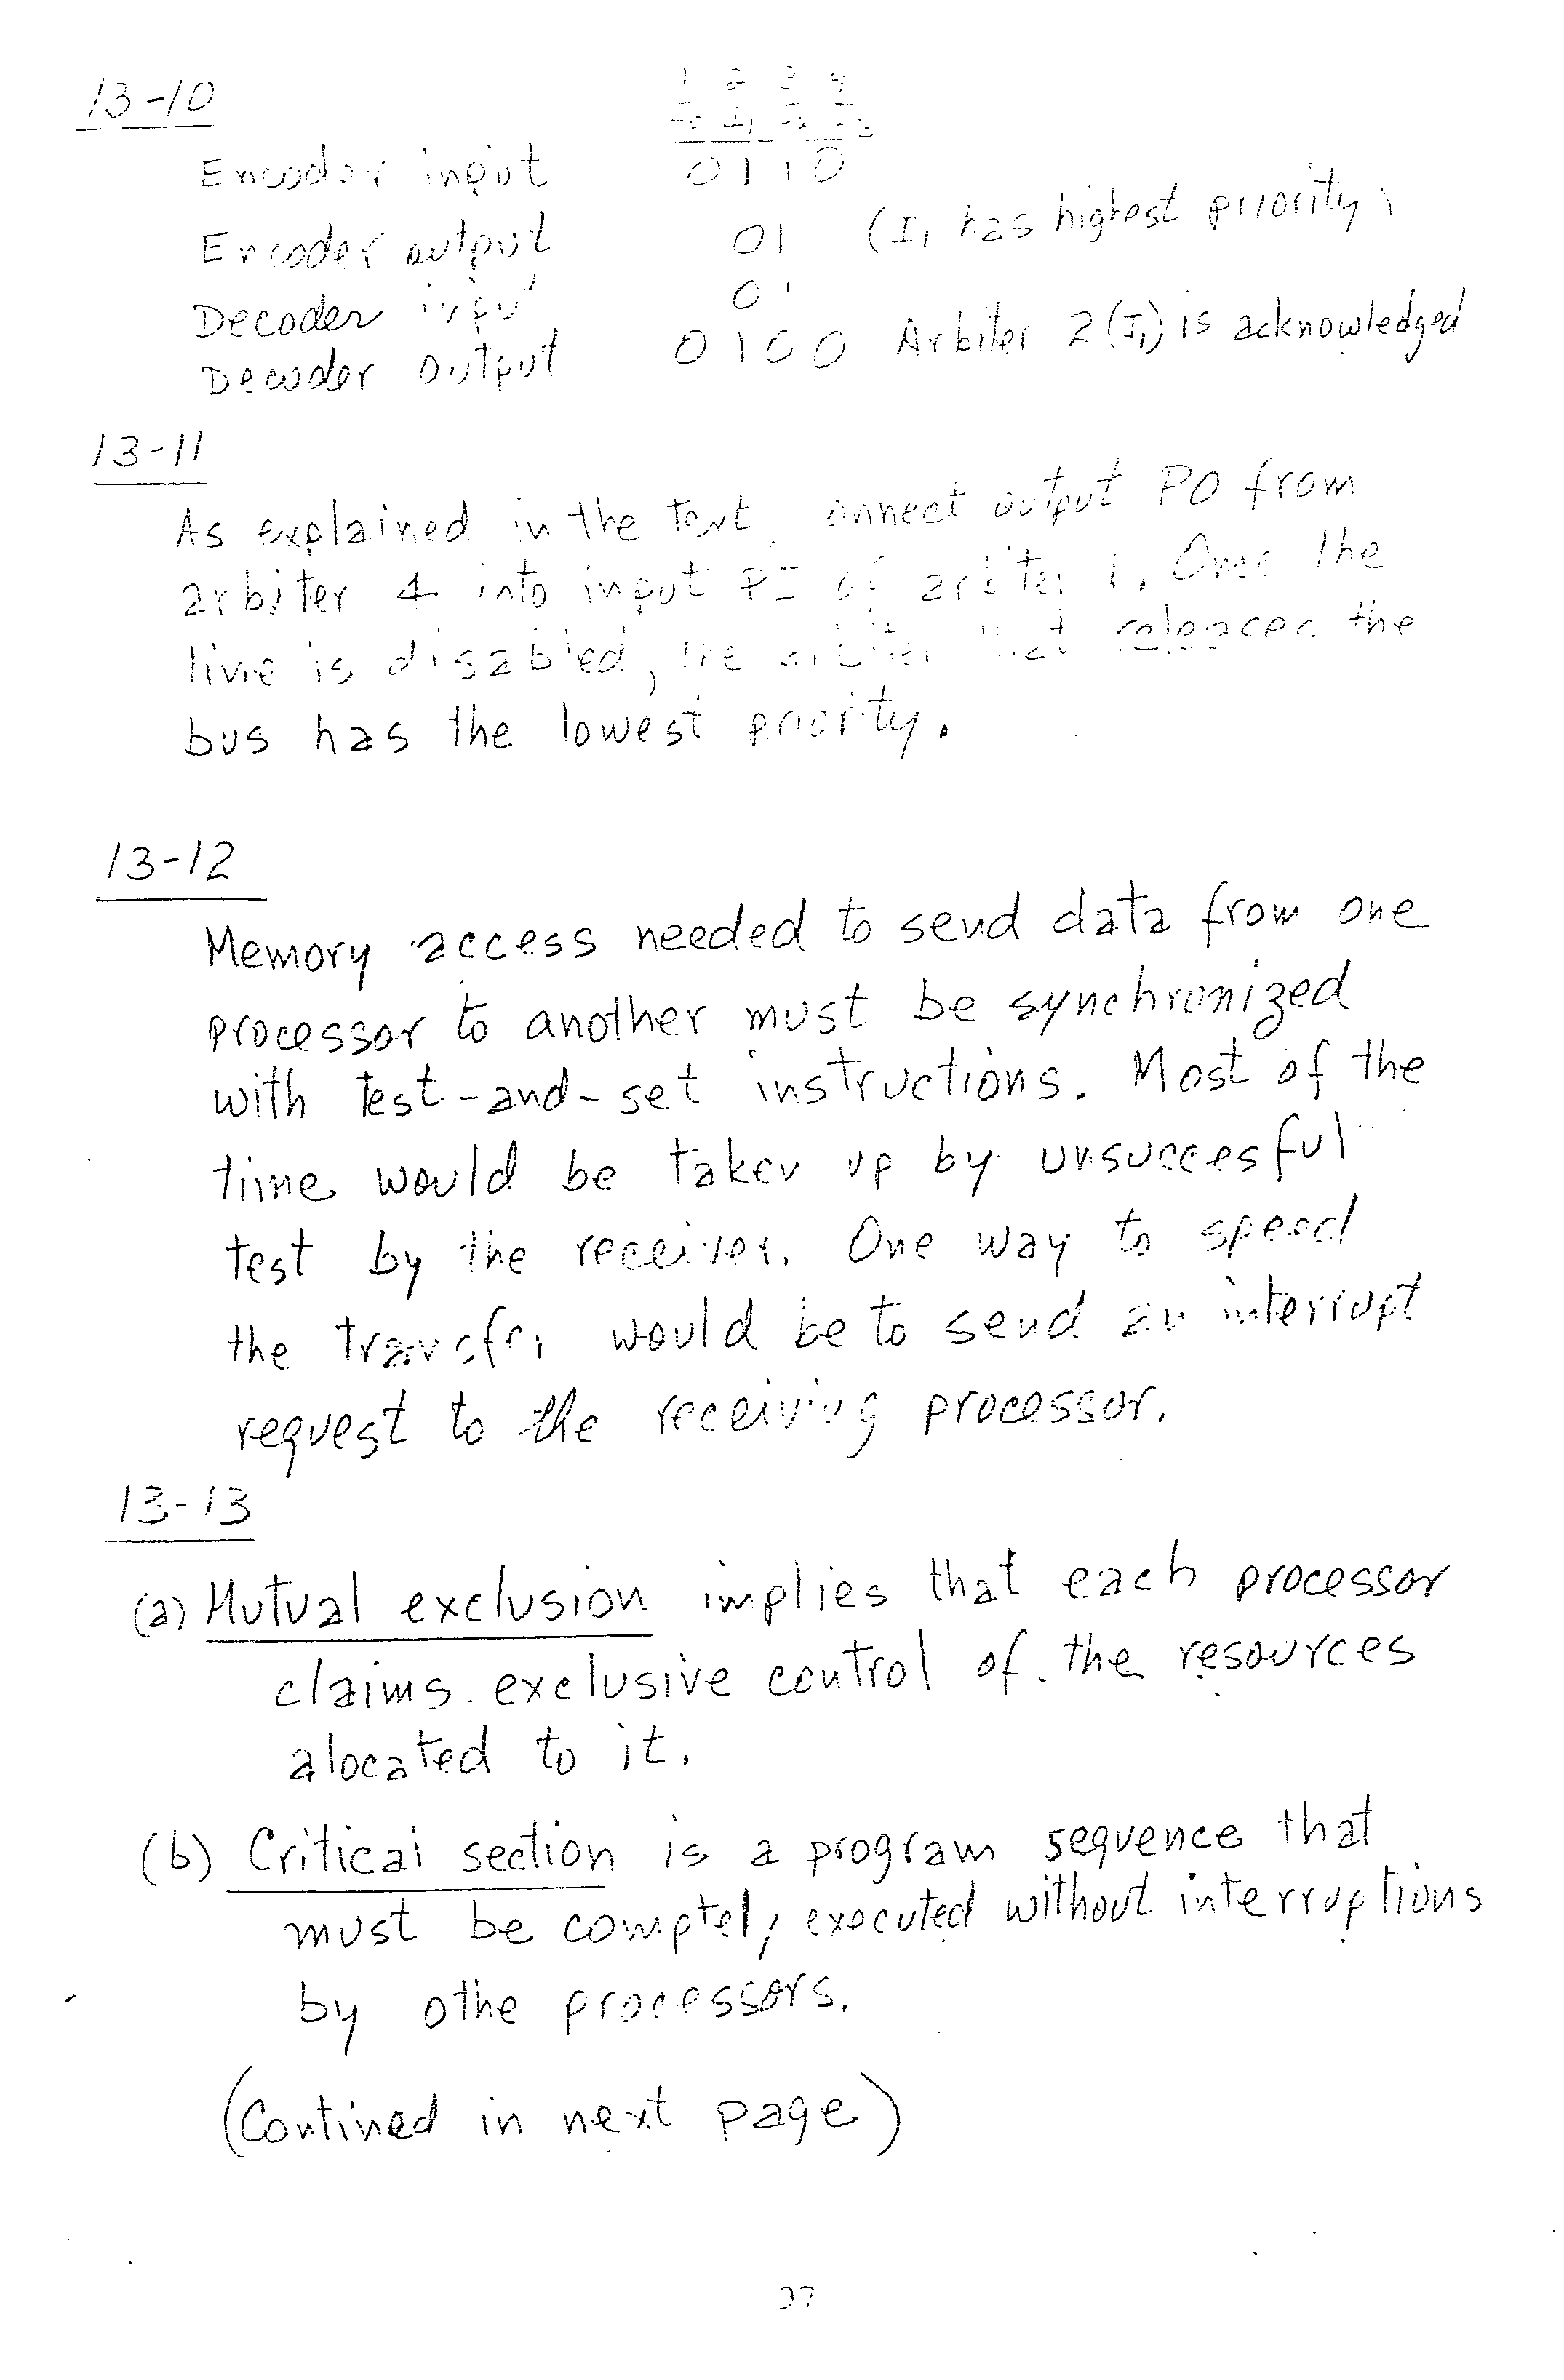 13-10
1 2 3 4
I1
Encoder input 0110
Encoder output 01 (I1 has highest priority)
Decoder input 01
Decoder output 0100 Arbiter 2 (I1) is acknowledged
13-11
As explained in the text, connect output PO from
arbiter 4 into input PI of arbiter 1. Once the
line is disabled, the arbiter that releases the
bus has the lowest priority.
13-12
Memory access needed to send data from one
processor to another must be synchronized
with test-and-set instructions. Most of the
time would be taken up by unsuccesful
test by the receiver. One way to speed
the transfer would be to send an interrupt
request to the receiving processor.
13-13
(a) Mutual exclusion implies that each processor
claims exclusive control of the resources
alocated to it.
(b) Critical section is a program sequence that
must be comptely executed without interruptions
by othe processors.
(Contined in next page)
37